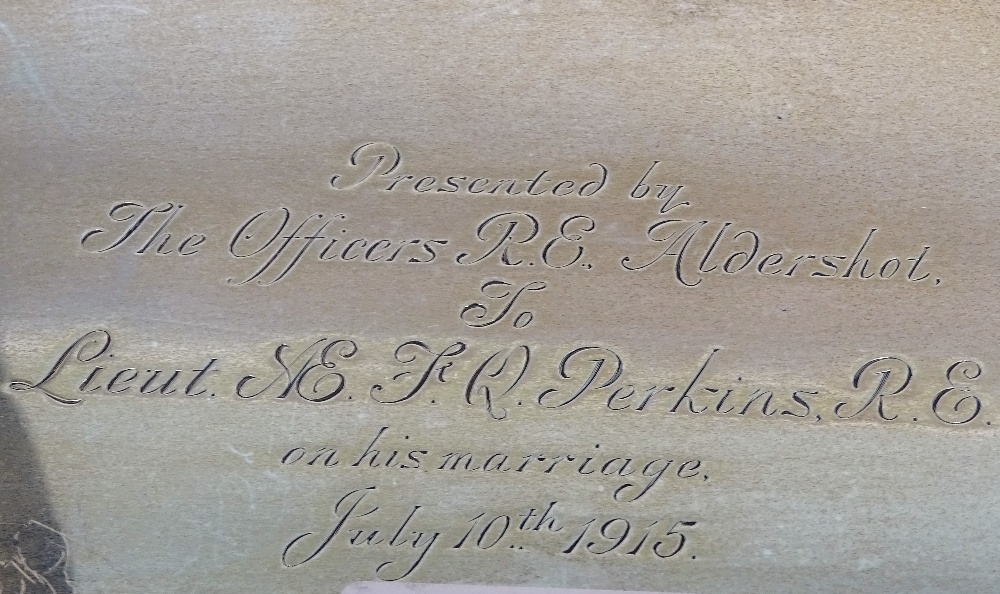 Presented by
The Officers R.E., Aldershot,
To
Lieut. Æ. F. Q. Perkins, R.E.
on his marriage,
July 10th 1915.